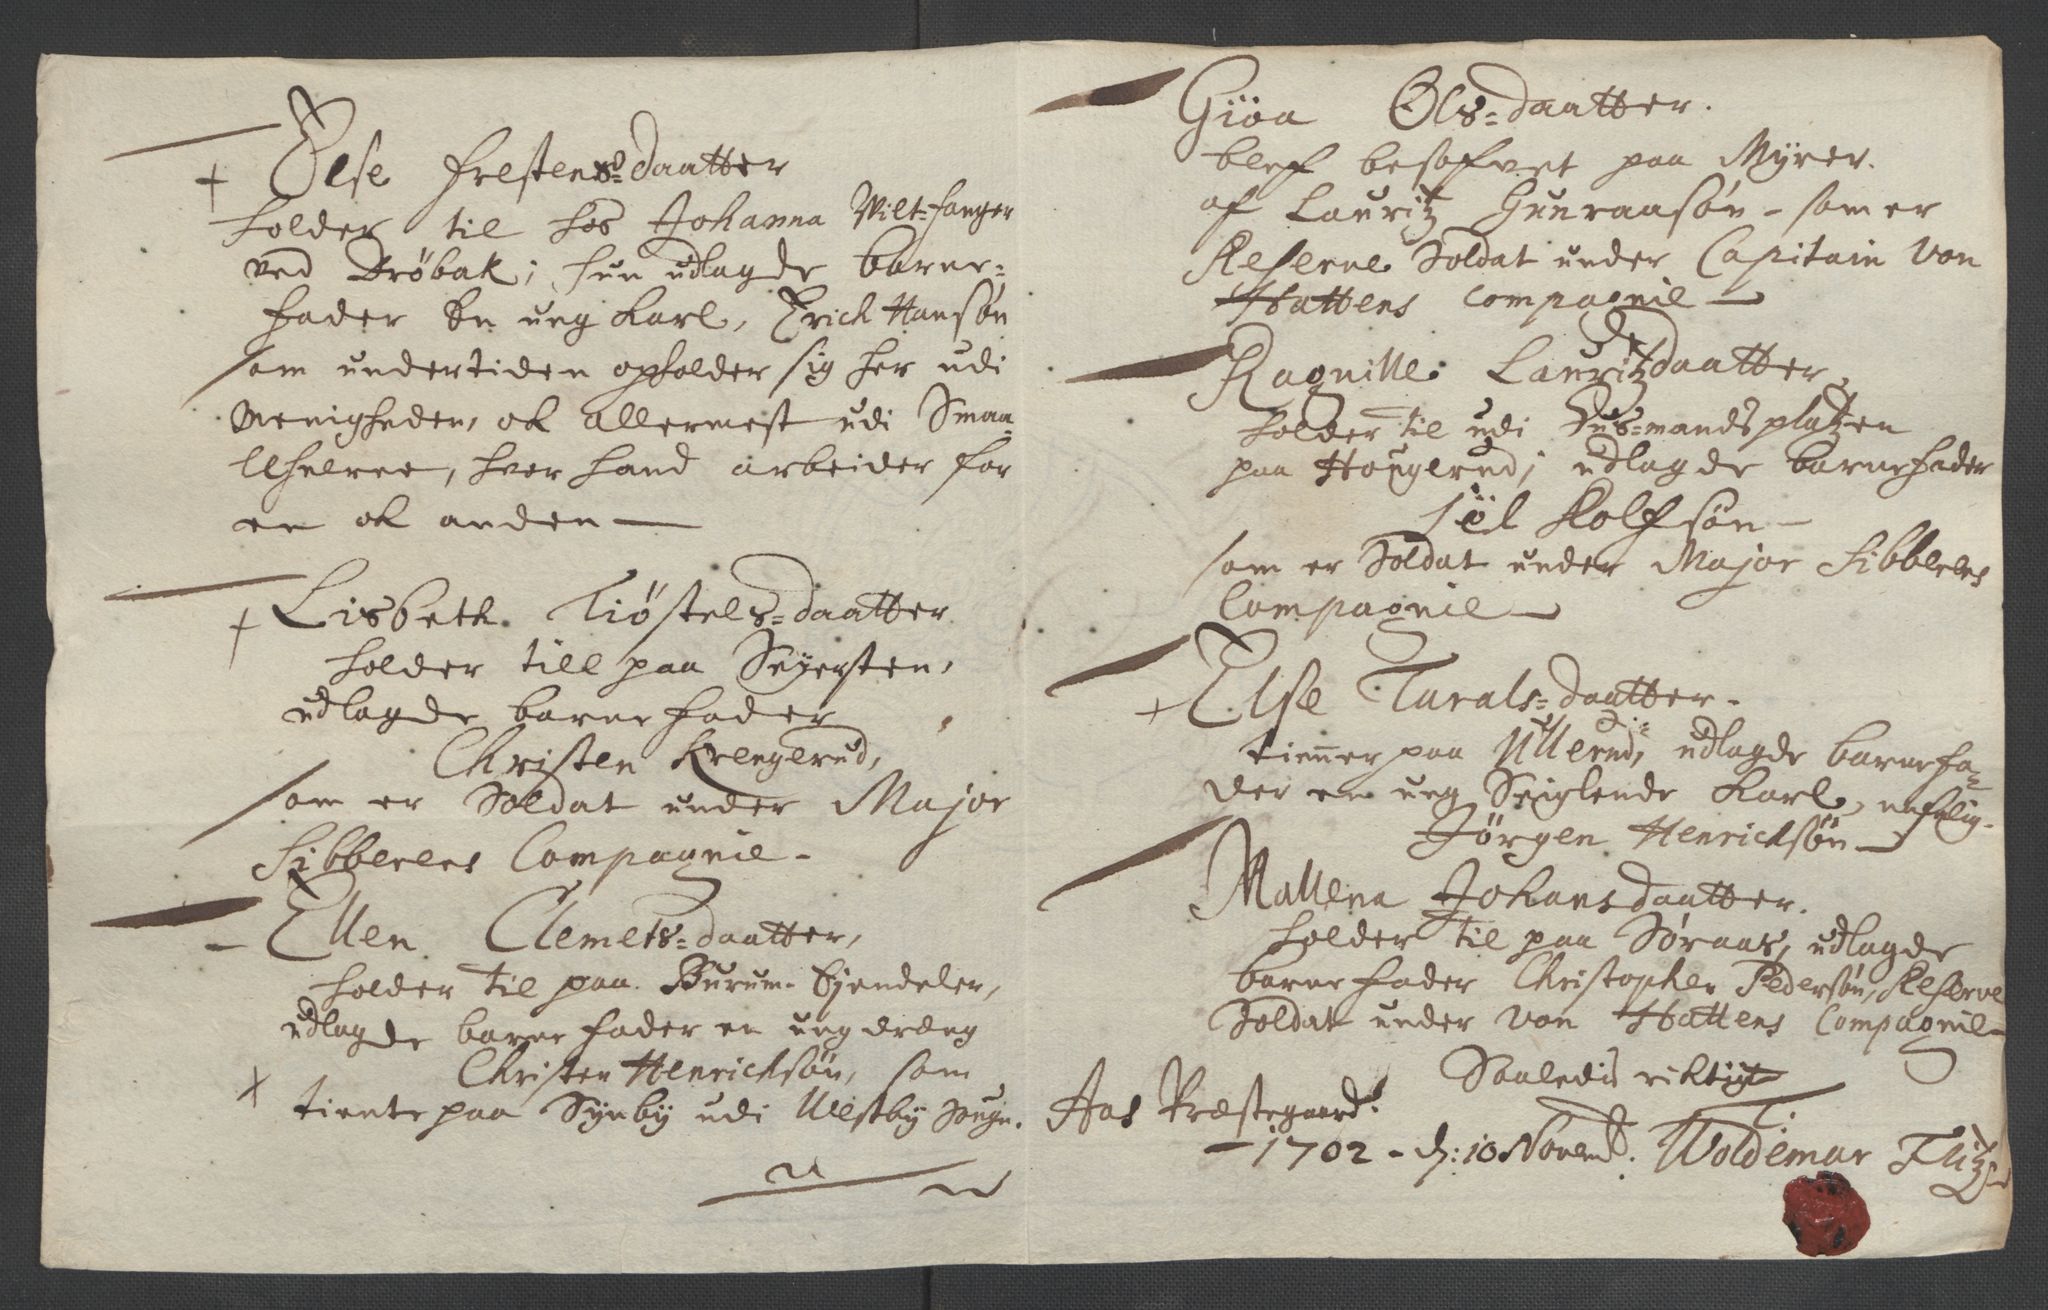 Else Frestens=daatter
holder til hos Johanna Wilt=fanger
ved Drøbak; hun udlagde barne=
fader En ung Karl, Erich Hansøn
som undertiden opholder sig her udi
Menigheden, ok allermest udi Smaa=
lehnene, hvor hand arbeider for
en ok anden —
Lisbeth Tiøstels=daatter
holder till paa Seyersten,
udlagde barne fader
Christen Krengerud,
som er Soldat under Major
Sibberens Compagnie –
Ellen Clemets=daatter,
holder til paa Burum Ejendeler,
udlagde barne fader en ung dreng
Christen Henrichsøn, som
tiente paa Synby udi Westby Sogn.
Giøa Ols=daatter.
blef besofvet paa Myrer.
af Lauritz Gunraasøn – som er
Reserve Soldat under Capitain von
Hattens Compagnie —
Ragnille Lauritzdaatter,
holder til udi Hus=mandsplatzen
paa Hougerud; udlagde barnefader
Siöl Rolfsøn –
som er Soldat under Major Sibberens
Compagnie —
Else Turals=daatter –
tienner paa Ullerud, udlagde barnefa=
der en ung Seiglende Karl, nefnlig.
Jørgen Henrichsøn —
Mallena Johansdaatter.
holder til paa Søraas, udlagde
barne fader Christopher Pedersøn, Reserve
Soldat under von Hattens Compagnie
Saaledis riktigt
Aas Præstegaard.
– 1702 – d: 10 Novemb. T: Woldemar Flitz